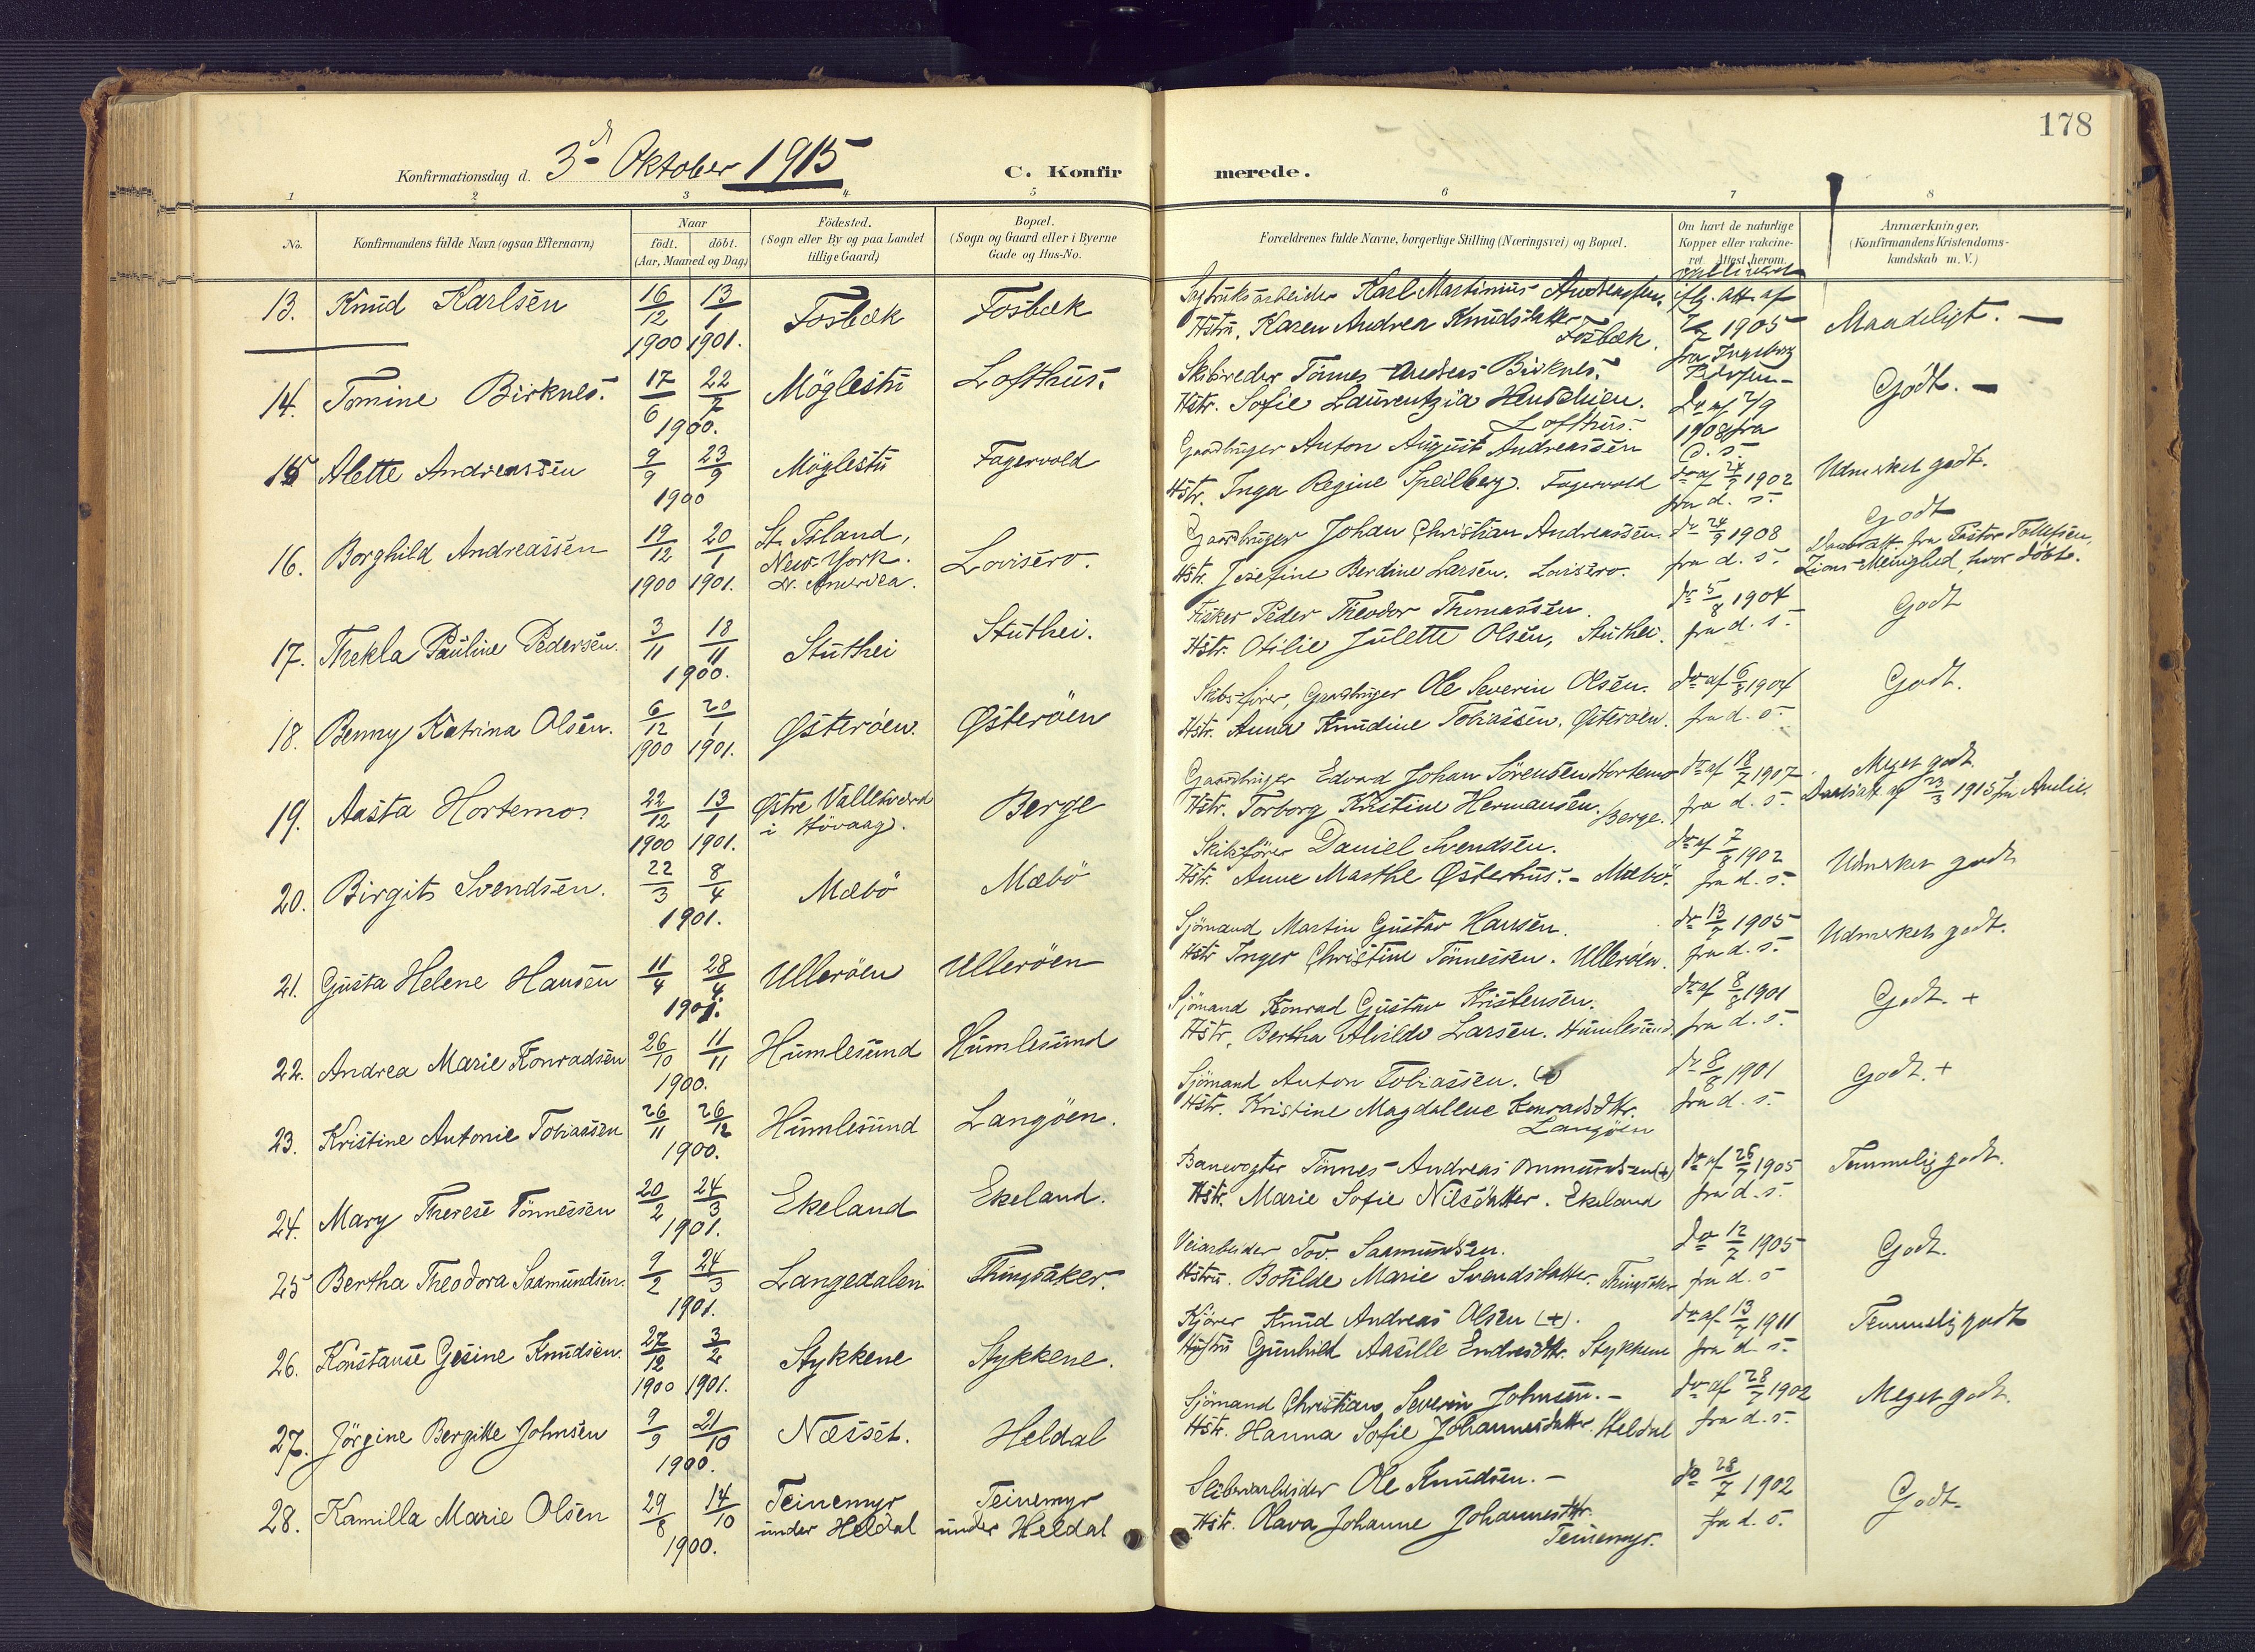 178
Konfirmationsdag d. 3d Oktober 1915
C. Konfirmerede.
1 2 3 4 5 6 7 8
No.
Konfirmandens fulde Navn (ogsaa Efternavn)
Naar
födt. döbt.
(Aar, Maaned og Dag)
Födested.
(Sogn eller By og paa Landet
tillige Gaard)
Bopæl.
(Sogn og Gaard eller i Byerne
Gade og Hus-No.
Forældrenes fulde Navne, borgerlige Stilling (Næringsvei) og Bopæl.
Om havt de naturlige
Kopper eller vakcine-
ret. Attest herom.
Anmærkninger.
(Konfirmandens Kristendoms-
kundskab m. V.)
13. Knud Karlsen 16/12 1900 13/1 1901. Fosbæk Fosbæk
Sagbruksarbeider Karl Martinius Andreassen.
Hstru. Karen Andrea Knudsdatter Fosbæk.
iflg. att. af 1905 fra Ingeborg
Maadeligt. —
14. Tomine Birknes. 17/6 22/7 1900. Möglestu Lofthus.
Skibsreder Tönnes Andreas Birknes.
Hstr. Sofie Laurentzia Hentchien. Lofthus.
Do af 7/9 1908 fra d. s.
Godt. —
15 Alette Andreassen 9/9 23/9 1900 Möglestu Fagervold
Gaardbruger Anton August Andreassen
Hstr. Inga Regine Speilberg. Fagervold
do af 24/7 1902 fra d. s.
Udmerket godt.
16. Borghild Andreassen 19/12 1900 20/1 1901. St. Island, New-York. N. Amerika. Lovisero.
Gaardbruger Johan Christian Andreassen.
Hstr. Josefine Berdine Larsen. Lovisero.
do 24/9 1908 fra d. s.
Godt
Daabsatt. fra Pastor Tollefsen,
Zions-Menighed, hvor döbt.
17. Thekla Pauline Pedersen. 3/11 18/11 1900. Stuthei Stuthei.
Fisker Peder Theodor Thomassen.
Hstr. Otilie Julette Olsen, Stuthei.
do 5/8 1904 fra d. s.
Godt
18. Benny Katrina Olsen. 6/12 1900 20/1 1901. Østeröen. Østeröen
Skibs-förer, Gaardbruger Ole Severin Olsen.
Hstr. Anna Knudine Tobiassen. Østeröen.
do af 6/8 1904 fra d. s.
Godt.
19. Aasta Hortemo. 22/12 1900 13/1 1901. Østre Vallesværd i Hövaag. Berge
Gaardbruger Edvard Johan Sörensen Hortemo
Hstr. Torborg Kristine Hermansen. Berge.
do af 18/7 1907 fra d. s.
Meget godt
Daabsatt. af 23/3 1915 fra
20. Birgit Svendsen. 22/3 8/4 1901. Mæbö Mæbö
Skibsförer Daniel Svendsen.
Hstr. Anne Marthe Østerhus. - Mæbö.
do af 7/8 1902 fra d. s.
Udmerket godt
21. Gusta Helene Hansen 11/4 28/4 1901. Ulleröen Ulleröen
Sjömand Martin Gustav Hansen.
Hstr Inger Christine Tönnessen. Ulleröen.
do 13/7 1905 fra d. s.
Udmerket godt.
22. Andrea Marie Konradsen 26/10 11/11 1900. Humlesund Humlesund
Sjömand Konrad Gustav Kristensen.
Hstr. Bertha Alvilde Larsen. Humlesund.
do af 8/8 1901 fra d. s.
Godt. +
23. Kristine Antonie Tobiassen 26/11 26/12 1900. Humlesund Langöen.
Sjömand Anton Tobiassen.
Hstr. Kristine Magdallene Konradsdttr. Langöen
do 8/8 1901 fra d. s.
Godt. +
24. Mary Therese Tönnessen 20/2 24/3 1901. Ekeland Ekeland.
Banevogter Tönnes Andreas Anmundsen (+)
Hstr. Marie Sofie Nilsdatter. Ekeland
do af 26/7 1905 fra d. s.
Temmelig godt.
25 Bertha Theodora Saamundsen. 9/2 24/3 1901. Langedalen Thingsaker.
Veiarbeider Tov. Saamundsen.
Hstru. Botilde Marie Svendsdatter. Thingsaker
do 12/7 1905 fra d. s
Godt.
26. Konstanse Gesine Knudsen. 27/12 1900 3/2 1901. Stykkene Stykkene.
Kjörer Knud Andreas Olsen (+).
Hustru Gunhild Aasille Endresdttr. Stykkene
do af 13/7 1911 fra d. s.
Temmelig godt
27. Jörgine Bergitte Johnsen 9/9 21/10 1900. Næsset. Heldal
Sjömand Christian Severin Johnsen. -
Hstr. Hanna Sofie Johannesdatter. Heldal
do af 28/7 1902 fra d. s.
Meget godt.
28. Kamilla Marie Olsen 29/8 14/10 1900. Teinemyr under Heldal Teinemyr under Heldal
Skibsarbeider Ole Knudsen. -
Hstr. Olava Johanne Johannesdttr. Teinemyr.
do 28/7 1902 fra d. s.
Godt.